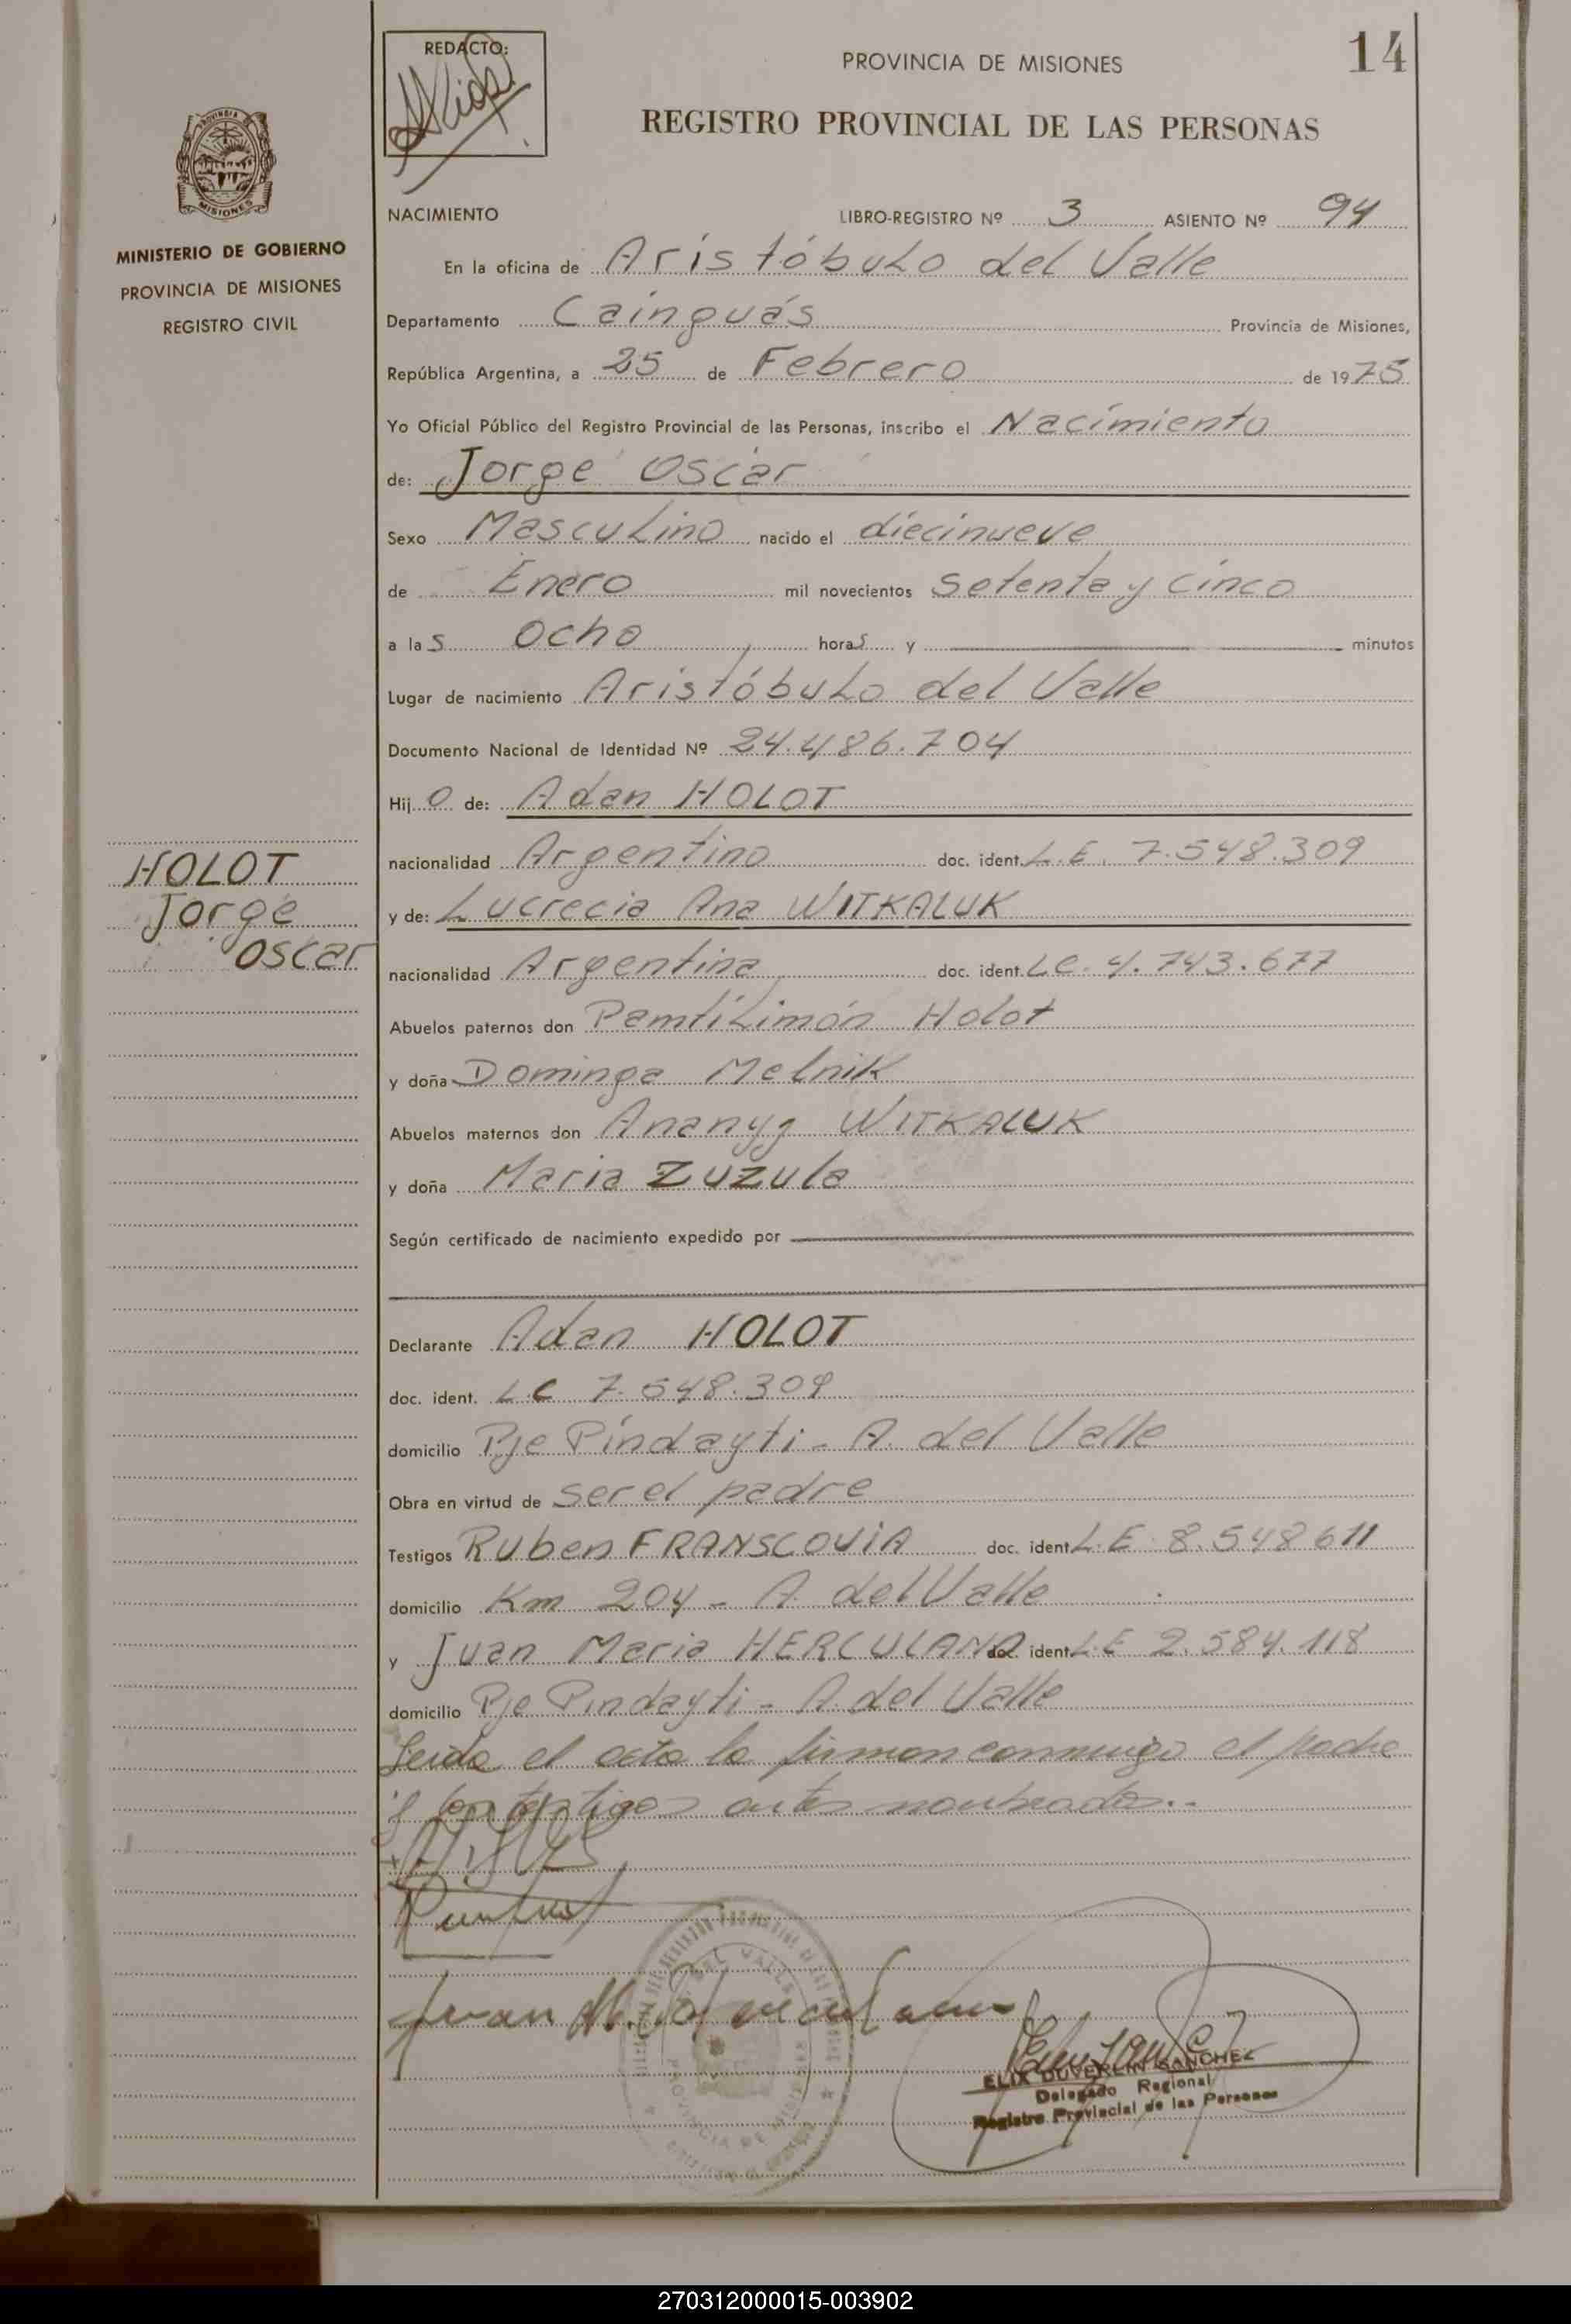 REDACTO:
PROVINCIA DE MISIONES
14
REGISTRO PROVINCIAL DE LAS PERSONAS
PROVINCIA
MISIONES
MINISTERIO DE GOBIERNO
PROVINCIA DE MISIONES
REGISTRO CIVIL
NACIMIENTO LIBRO-REGISTRO Nº 3 ASIENTO Nº 94
En la oficina de Aristóbulo del Valle
Departamento Cainguás Provincia de Misiones,
República Argentina, a 25 de Febrero de 1975
Yo Oficial Público del Registro Provincial de las Personas, inscribo el Nacimiento
de: Jorge Oscar
Sexo Masculino nacido el diecinueve
de Enero mil novecientos setenta y cinco
a las ocho horas y minutos
Lugar de nacimiento Aristóbulo del Valle
Documento Nacional de Identidad Nº 24.486.704
Hijo de: Adan HOLOT
nacionalidad Argentino doc. ident. L.E. 7.548.309
y de: Lucrecia Ana WITKALUK
nacionalidad Argentina doc. ident. LC. 4.743.677
HOLOT
Jorge
Oscar
Abuelos paternos don Pamtilimón Holot
y doña Dominga Melnik
Abuelos maternos don WITKALUK
y doña Maria ZUZULA
Según certificado de nacimiento expedido por
Declarante Adan HOLOT
doc. ident. L.E 7.548.309
domicilio Pje Pindayti - A. del Valle
Obra en virtud de ser el padre
Testigos Ruben FRANSCOVIA doc. ident. L.E 8.548611
domicilio Km 204 - A. del Valle
y Juan Maria HERCULANO doc. ident. L.E 2.584.118
domicilio Pje Pindayti - A. del Valle
Leida el acta la firman conmigo el padre
y los testigos antes nombrados..
Juan M. Herculano
ELIX DUVERLIN SANCHEZ
Delegado Regional
Registro Provincial de las Personas
270312000015-003902